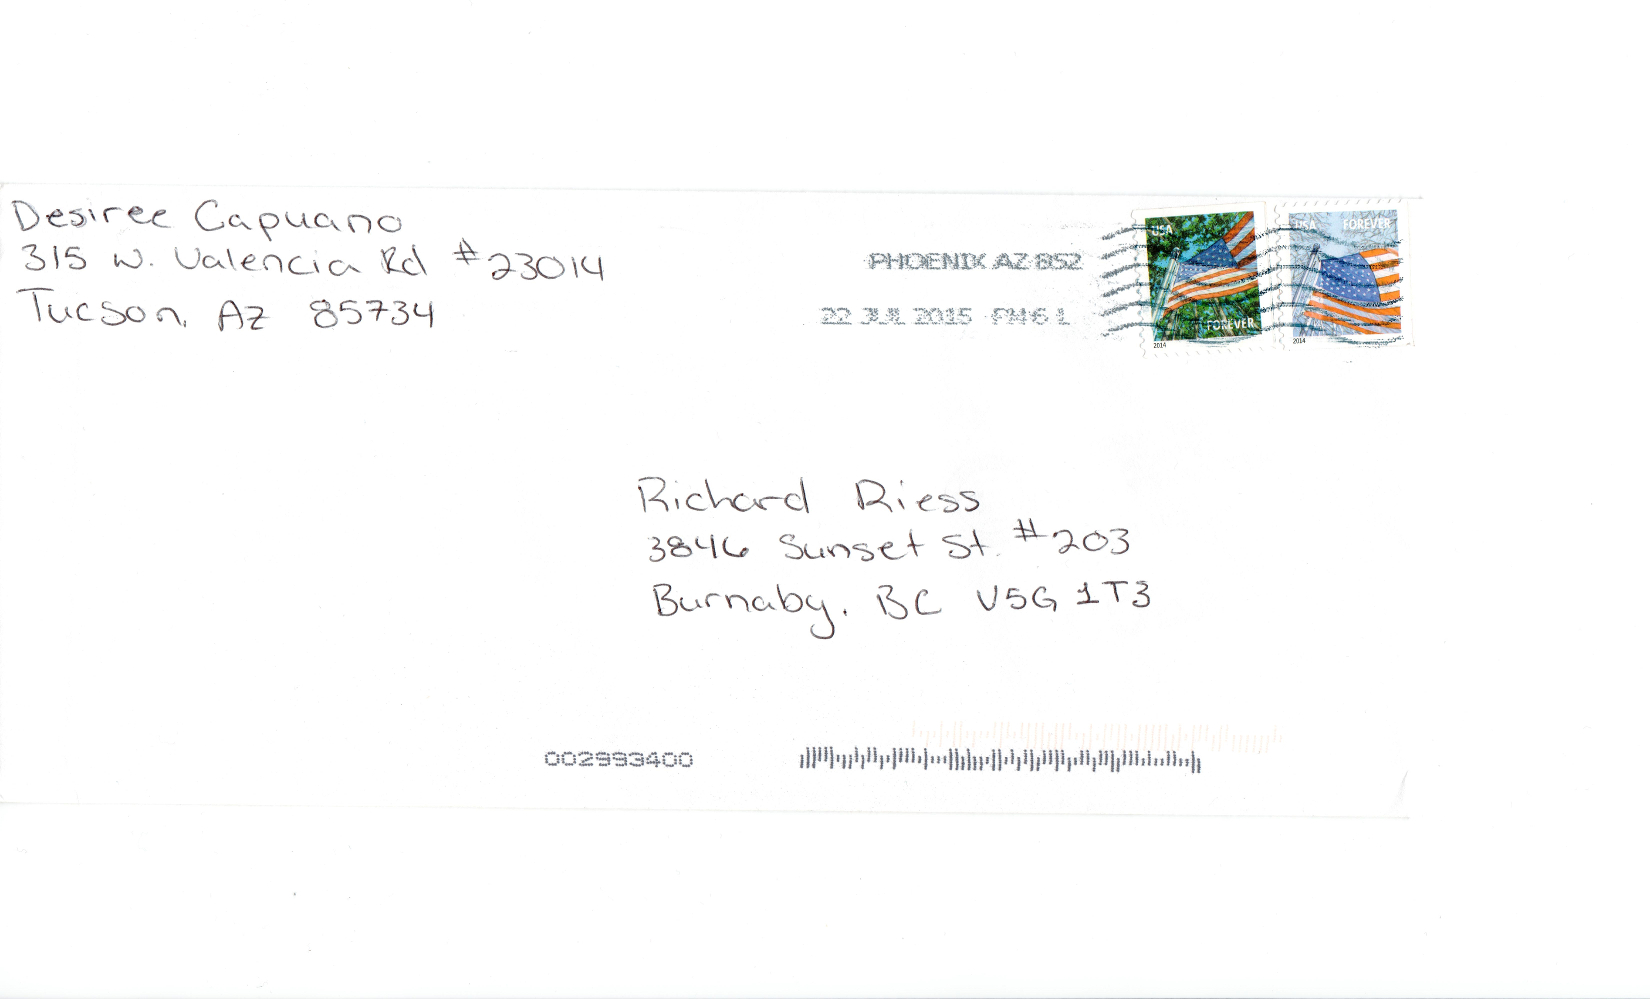 Desiree Capuano
315 W. Valencia Rd #23014
Tucson, AZ 85734
PHOENIX AZ 852
22 JUL 2015 PM 6 L
USA
FOREVER
2014
USA FOREVER
2014
Richard Riess
3846 Sunset St. #203
Burnaby, BC V5G 1T3
002993400